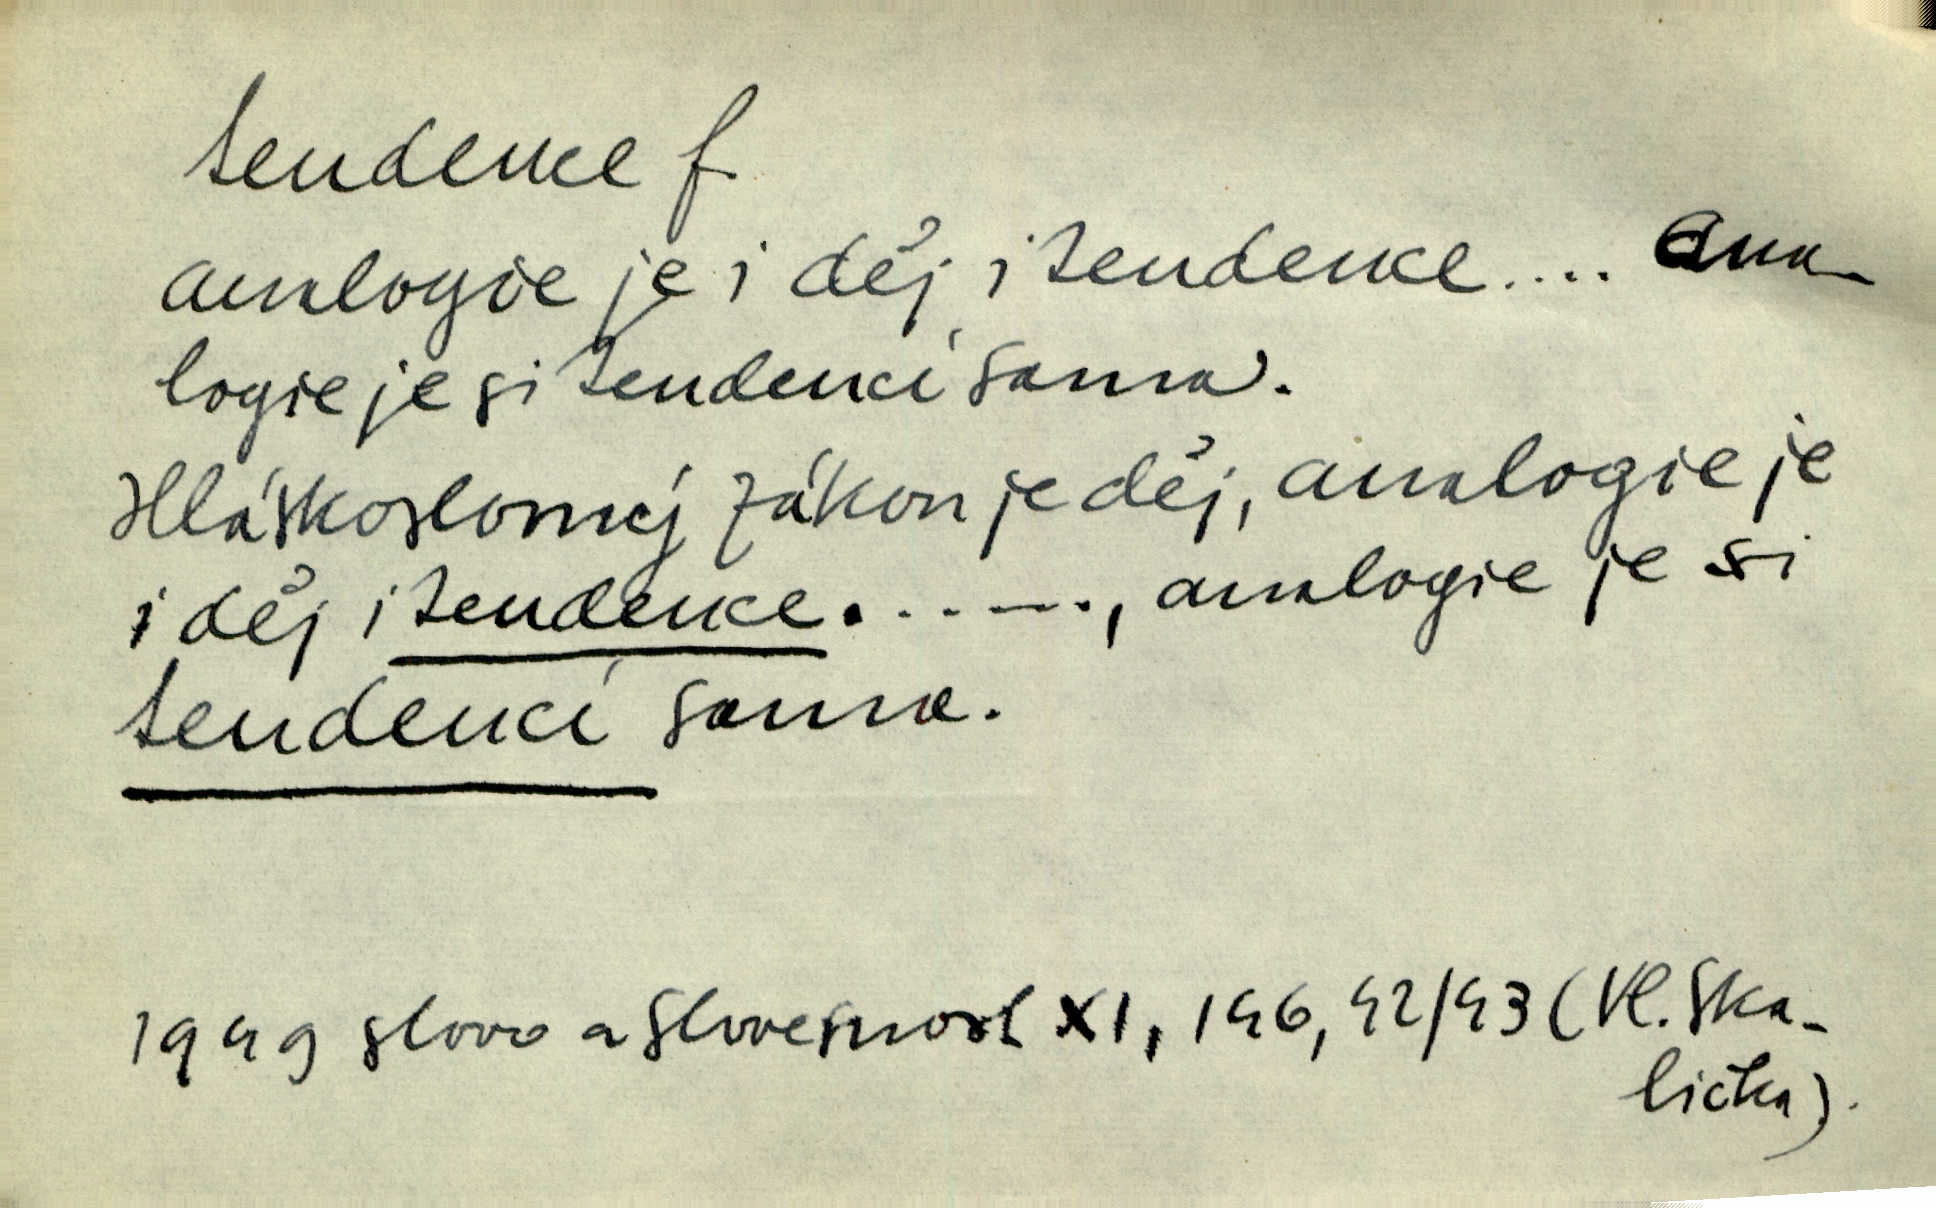 tendence f.
analogie je i děj i tendence.... ana-
logie je si tendencí sama.
Hláskoslovný zákon je děj, analogie je
i děj i tendence......., analogie je si
tendencí sama.
1949 slovo a slovesnost XI, 146, 42/43 (Vl. Ska-
lička).